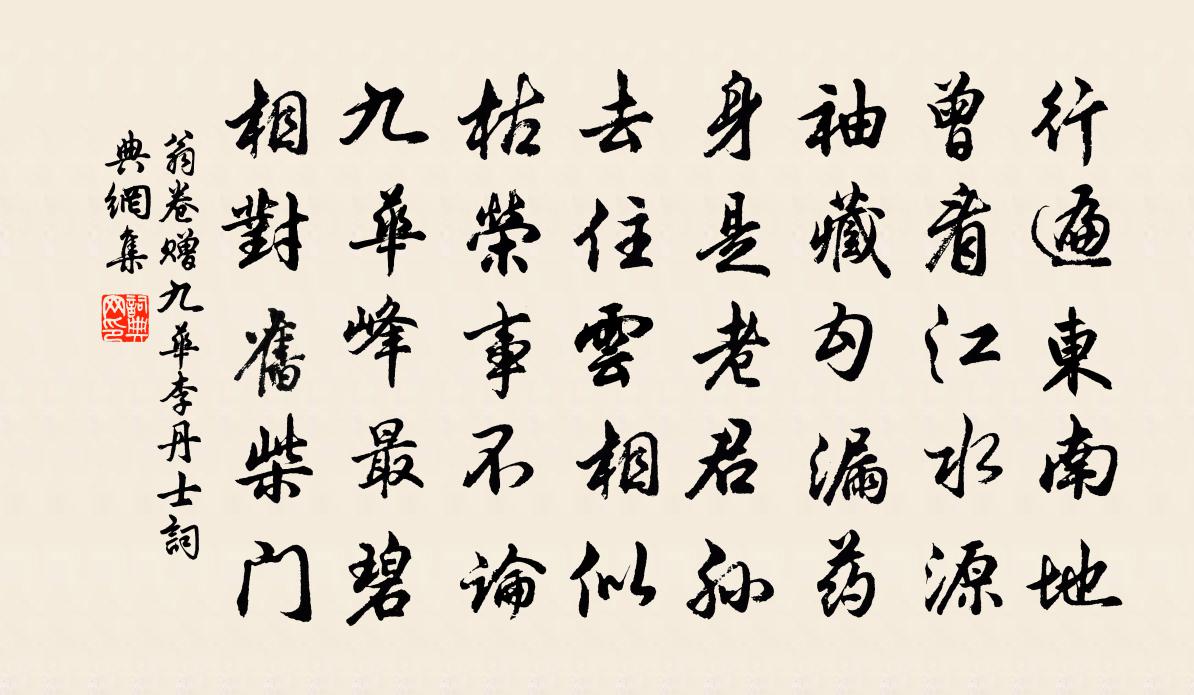 行遍東南地
曾看江水源
袖藏勾漏药
身是老君孫
去住雲相似
枯榮事不論
九華峰最碧
相對舊柴门
翁卷赠九華李丹士詞
典網集
詞典
网印